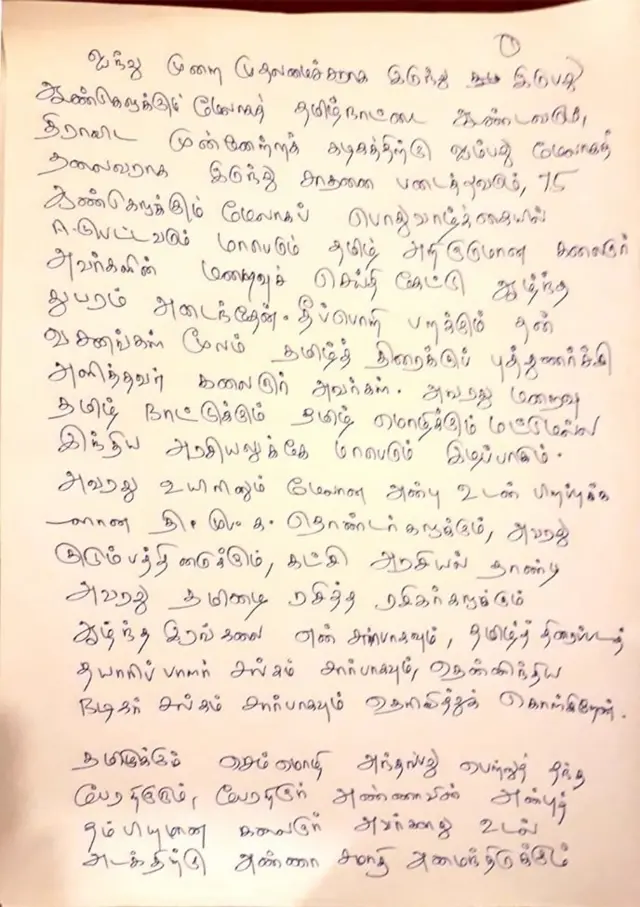 ①
ஐந்து முறை முதலமைச்சராக இருந்து இருபது
ஆண்டுகளுக்கும் மேலாகத் தமிழ்நாட்டை ஆண்டவரும்,
திராவிட முன்னேற்றக் கழகத்திற்கு ஐம்பது மேலாகத்
தலைவராக இருந்து சாதனை படைத்தவரும், 75
ஆண்டுகளுக்கும் மேலாகப் பொதுவாழ்க்கையில்
ஈடுபட்டவரும் மாபெரும் தமிழ் அறிஞருமான கலைஞர்
அவர்களின் மறைவுச் செய்தி கேட்டு ஆழ்ந்த
துயரம் அடைந்தேன். தீப்பொறி பறக்கும் தன்
வசனங்கள் மூலம் தமிழ்த் திரைக்குப் புத்துணர்ச்சி
அளித்தவர் கலைஞர் அவர்கள். அவரது மறைவு
தமிழ் நாட்டுக்கும் தமிழ் மொழிக்கும் மட்டுமல்ல
இந்திய அரசியலுக்கே மாபெரும் இழப்பாகும்.
அவரது உயிரினும் மேலான அன்பு உடன் பிறப்புக்க
ளான தி.மு.க. தொண்டர்களுக்கும், அவரது
குடும்பத்தினருக்கும், கட்சி அரசியல் தாண்டி
அவரது தமிழை ரசித்த ரசிகர்களுக்கும்
ஆழ்ந்த இரங்கலை என் சார்பாகவும், தமிழ்த் திரைப்படத்
தயாரிப்பாளர் சங்கம் சார்பாகவும், தென்னிந்திய
நடிகர் சங்கம் சார்பாகவும் தெரிவித்துக் கொள்கிறேன்.
தமிழுக்கும் செம்மொழி அந்தஸ்து பெற்றுத் தந்த
பேரறிஞரும், பேரறிஞர் அண்ணாவின் அன்புத்
தம்பியுமான கலைஞர் அவர்களது உடல்
அடக்கத்திற்கு அண்ணா சமாதி அமைந்திருக்கும்